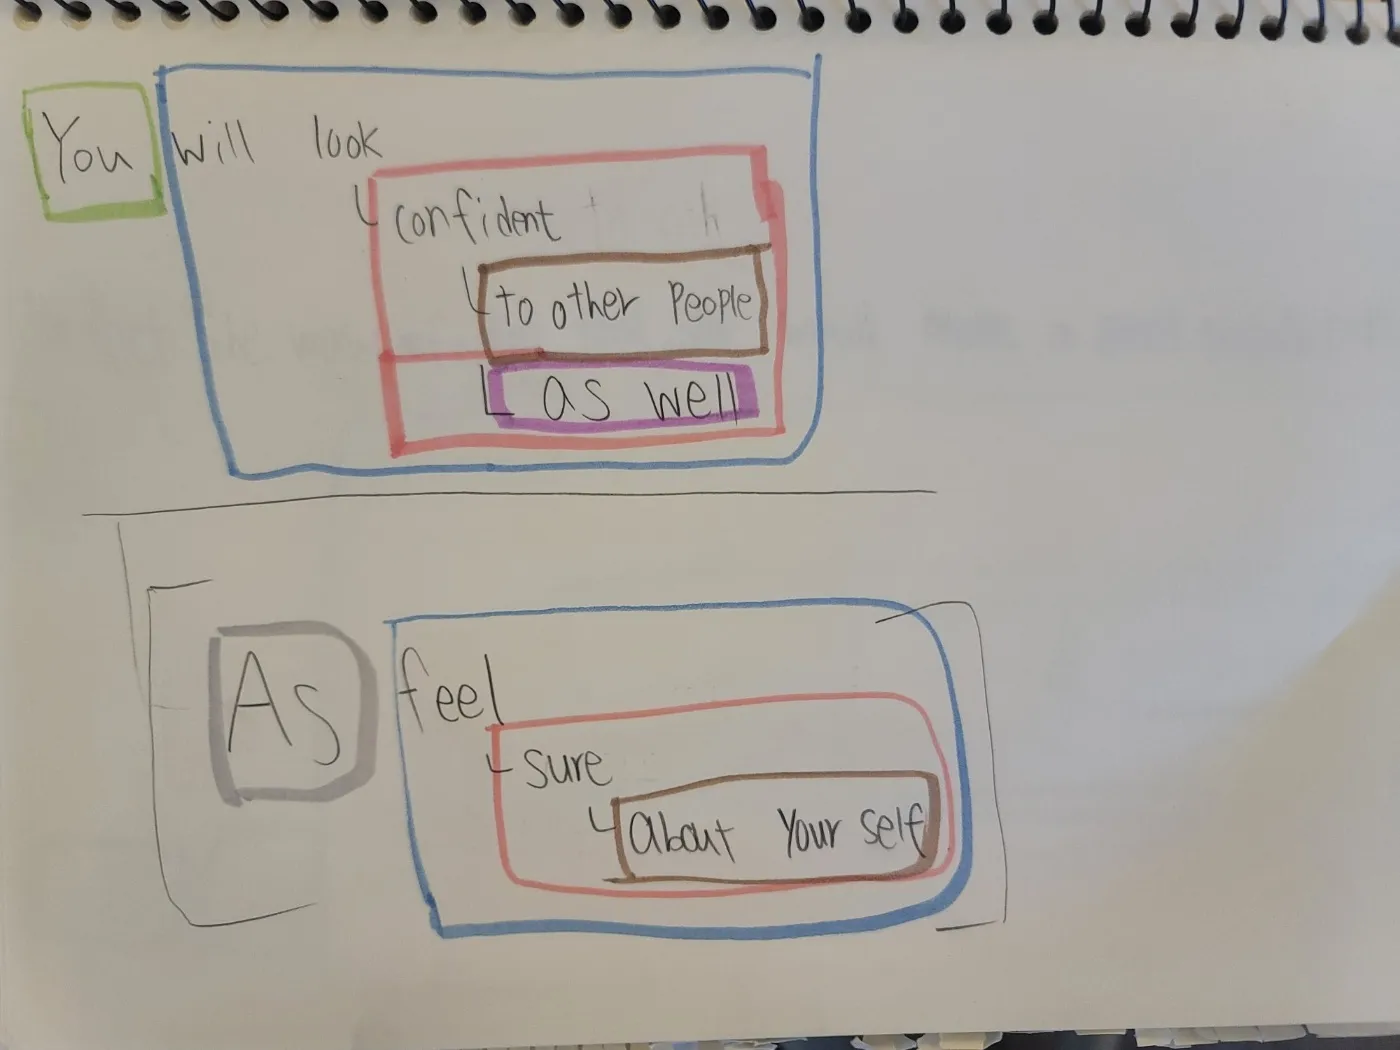 You will look
confident
to other People
as well
As feel
sure
about Your self